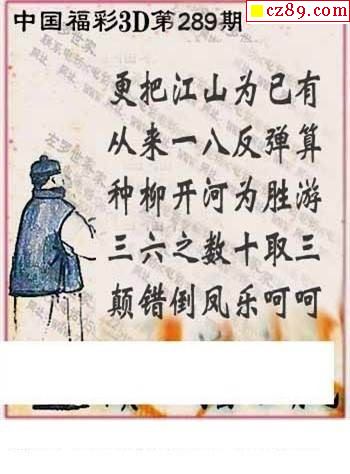 cz89.com
中国福彩3D第289期
更把江山为已有
从来一八反弹算
种柳开河为胜游
三六之数十取三
颠错倒凤乐呵呵